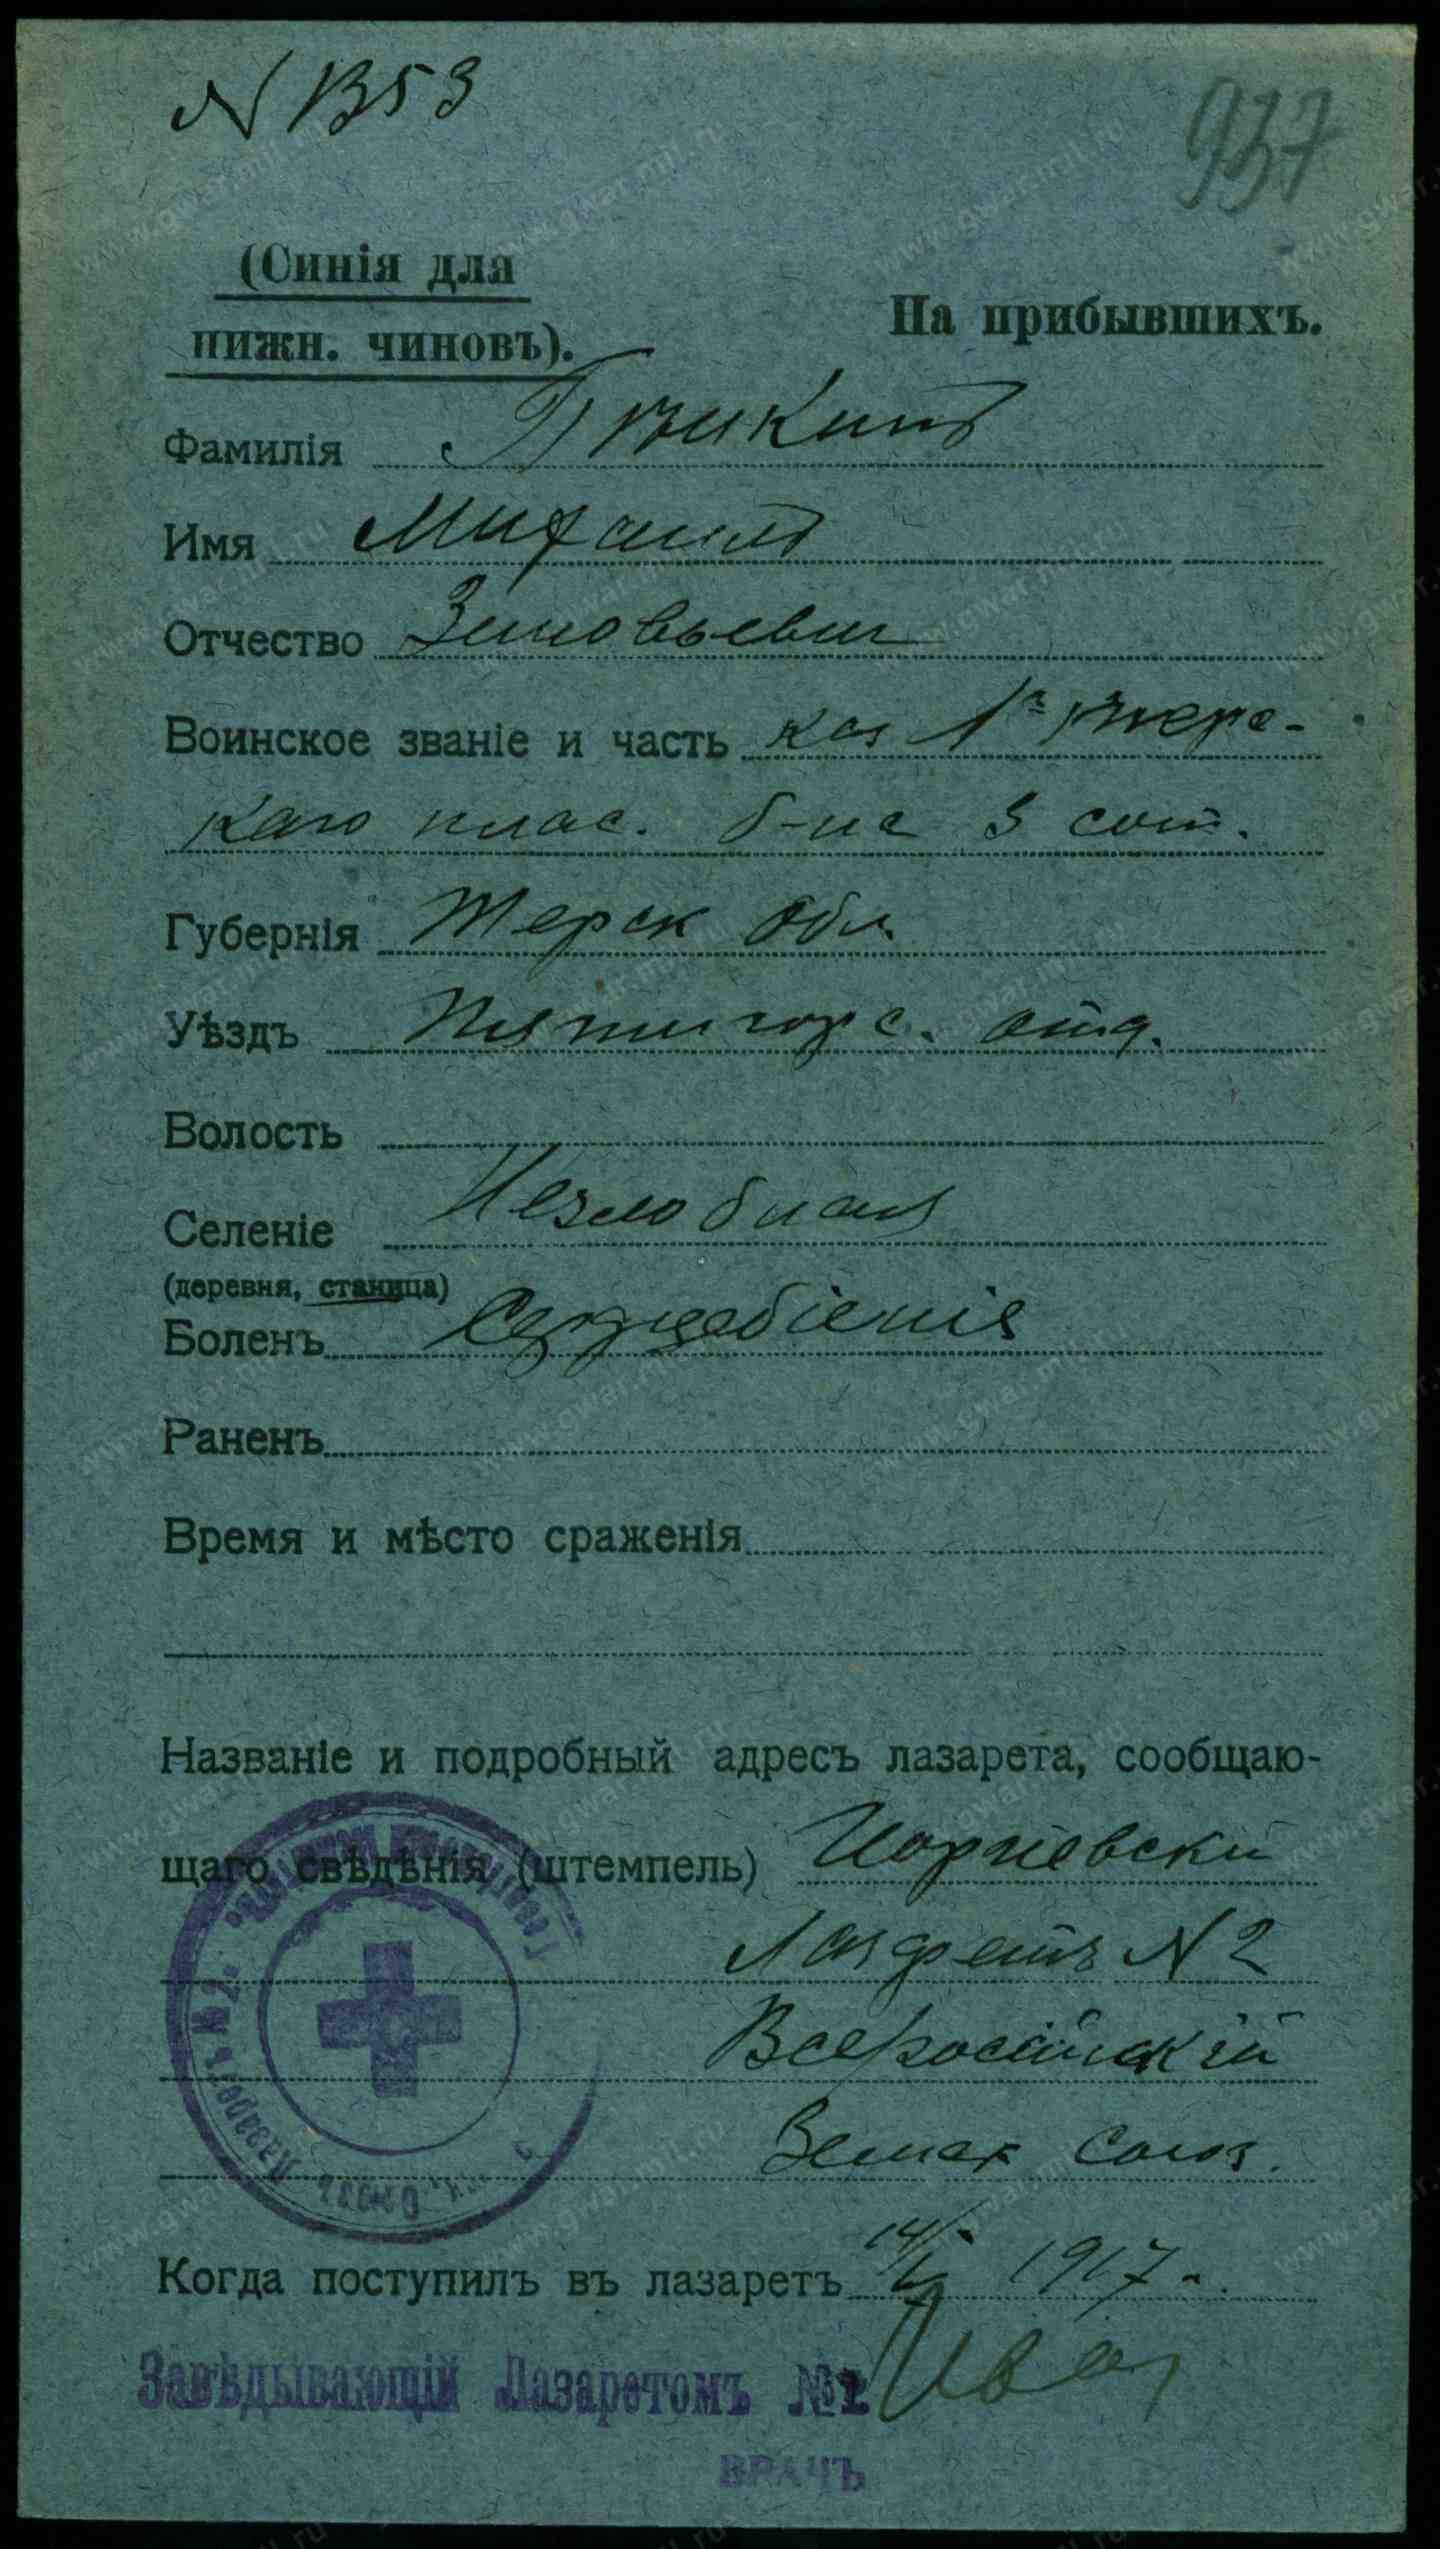 N 1353
937
(Синія для
нижн. чиновъ).
На прибывшихъ.
Фамилія
Имя Михаилъ
Отчество Зиновьевич
Воинское званіе и часть каз 1го терс-
каго плас. б-на 3 сот.
Губернія Терск Обл.
Уѣздъ Пятигорс. отд.
Волость
Селеніе Незлобная
(деревня, станица)
Боленъ Сердцебіенія
Раненъ
Время и мѣсто сраженія
Названіе и подробный адресъ лазарета, сообщаю-
щаго свѣдѣнія (штемпель)
Лазаретъ N 2
Всеросійскій
Земск Союз.
Лазаретъ № 2.
Когда поступилъ въ лазаретъ 14/I 1917 г.
Завѣдывающій Лазаретомъ №2
ВРАЧЪ
www.gwar.mil.ru